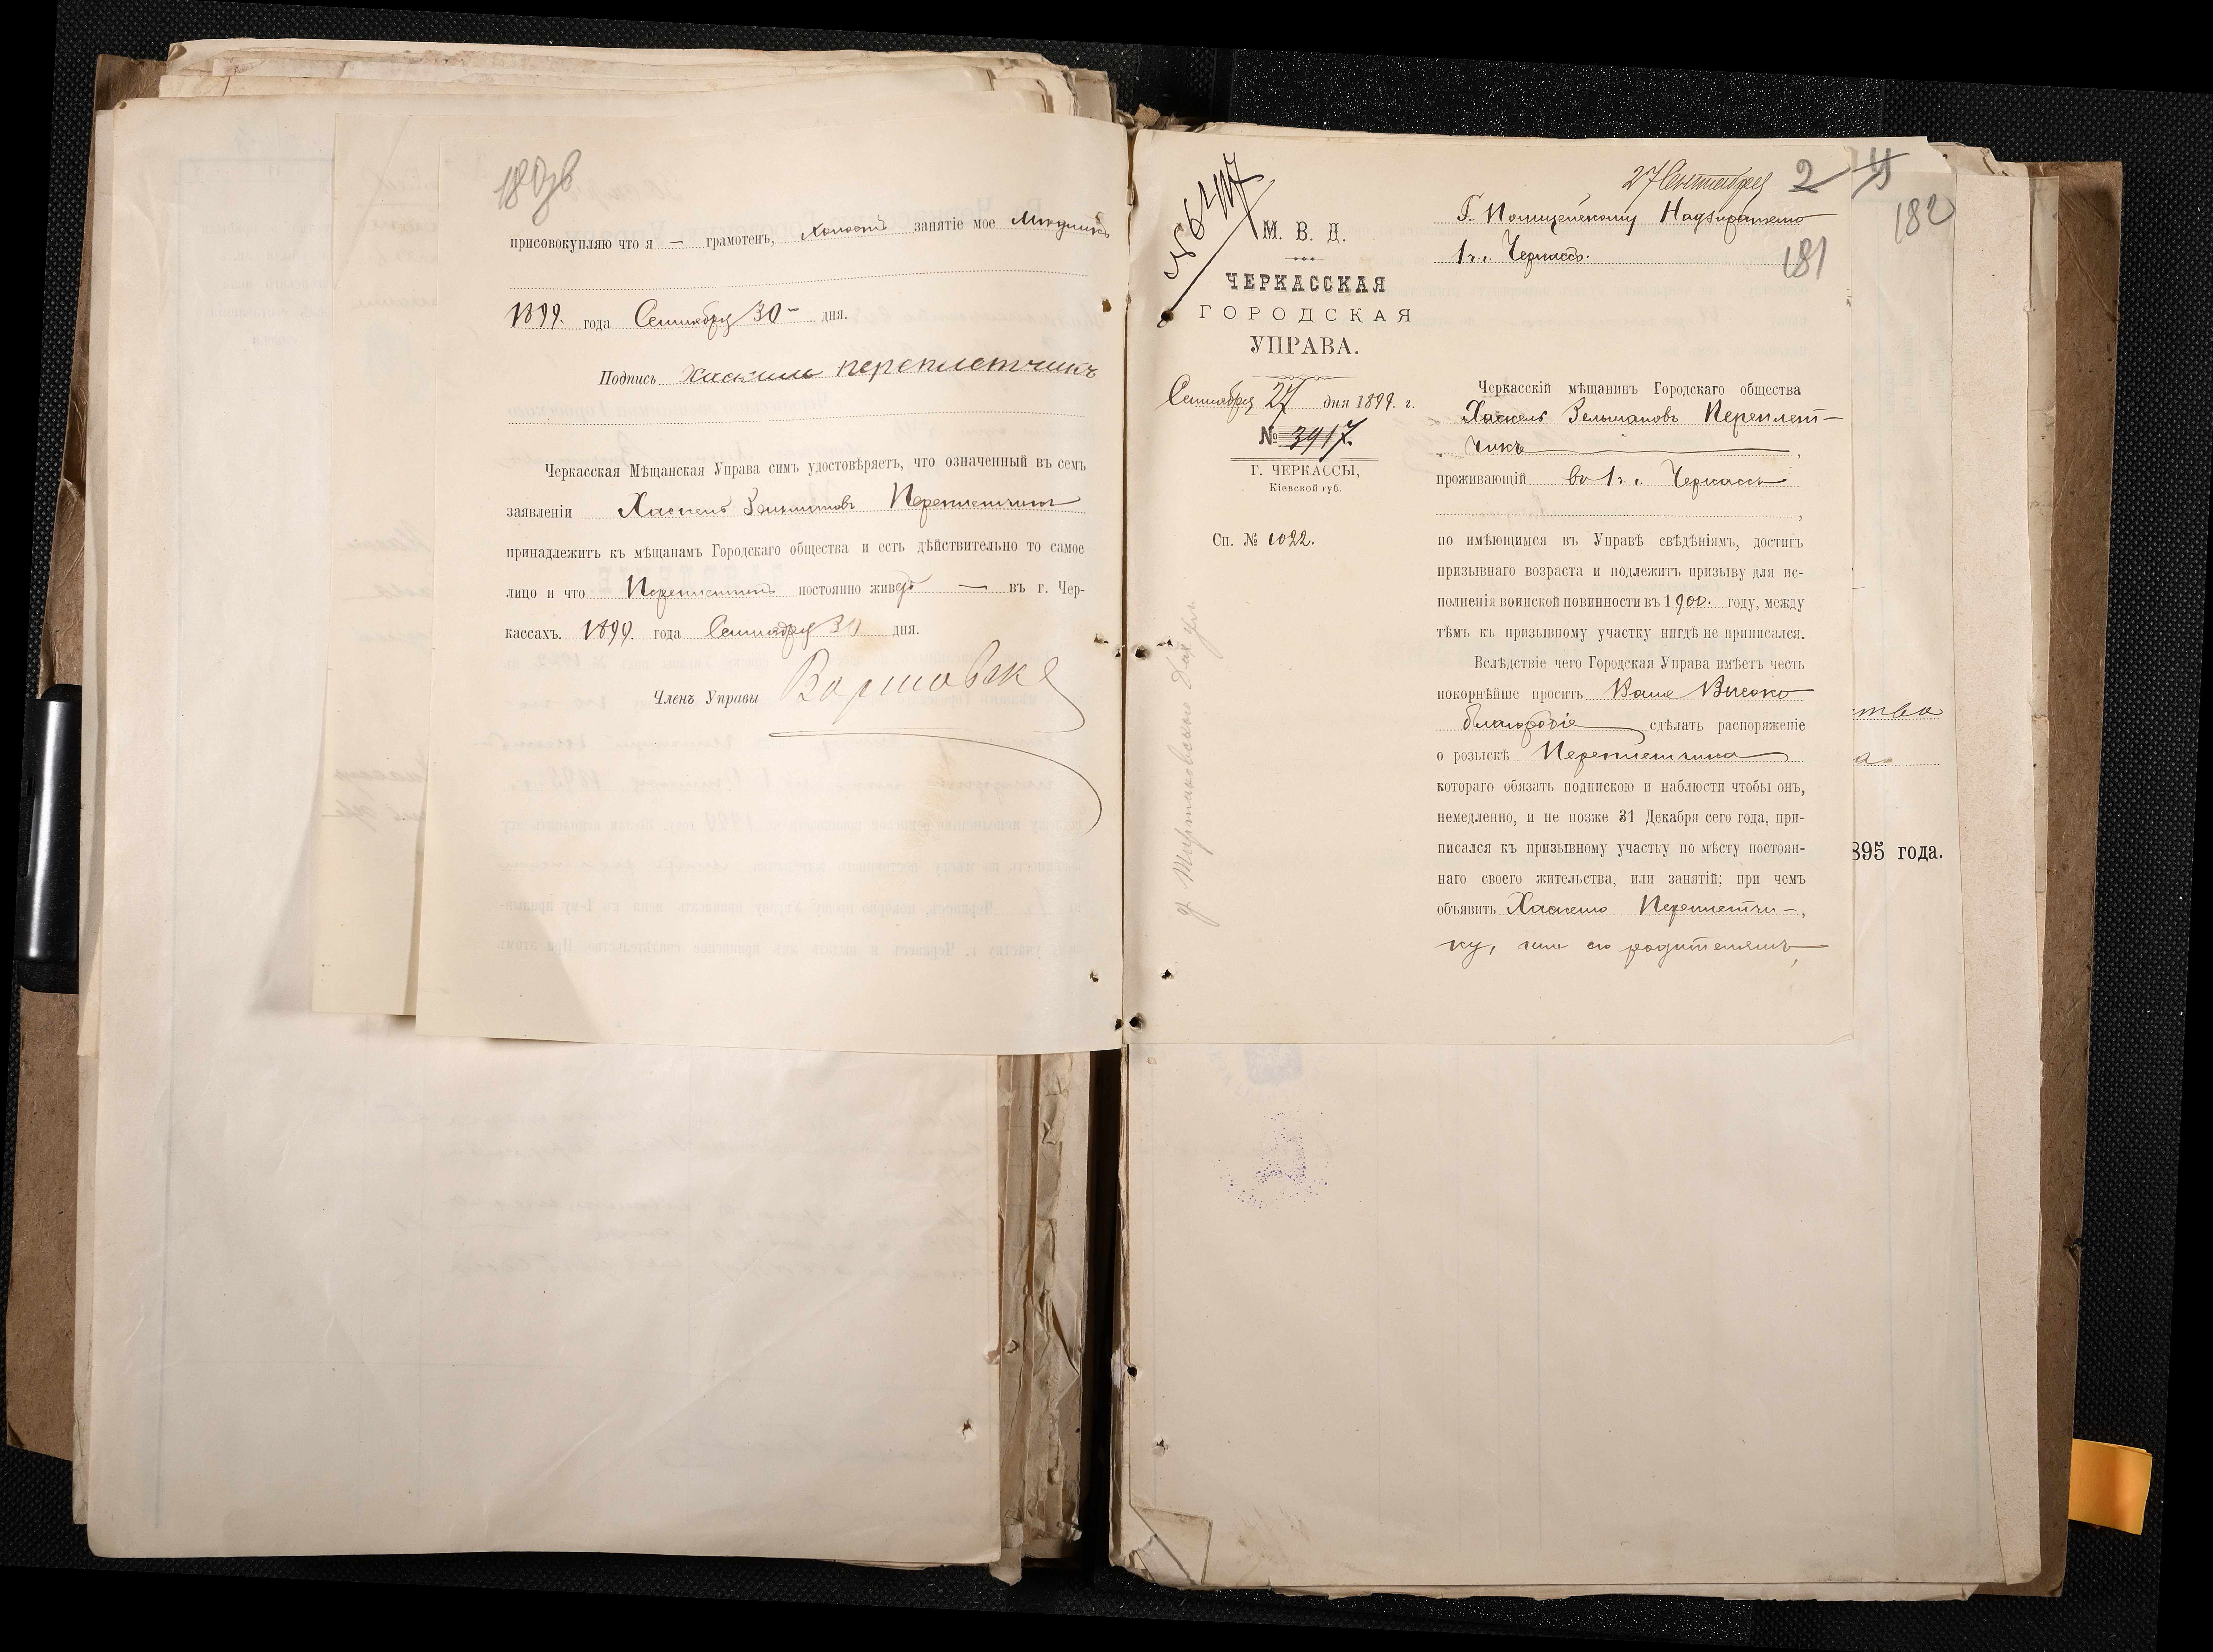 180об
присовокупляю что я — грамотенъ, холостъ занятіе мое
1899. года Сентября 30 дня.
Подпись Хаскиль переплетчикъ
Черкасская Мѣщанская Управа симъ удостовѣряетъ, что означенный въ семъ
заявленіи Хаскель Зельмановъ Переплетчикъ
принадлежитъ къ мѣщанамъ Городскаго общества и есть дѣйствительно то самое
лицо и что Переплетчикъ постоянно живетъ — въ г. Чер-
кассахъ. 1899. года Сентября 30 дня.
Членъ Управы
27 Сентября 2
182
181
М. В. Д.
ЧЕРКАССКАЯ
ГОРОДСКАЯ
УПРАВА.
Сентября 27 дня 1899. г.
№ 3917.
Г. ЧЕРКАССЫ,
Кіевской губ.
Сп. № 1022.
Г. Полицейскому Надзирателю
1 ч. г. Черкассъ.
Черкасскій мѣщанинъ Городскаго общества
Хаскель Зельмановъ Переплет-
чикъ,
проживающій во 1 ч. г. Черкассъ
,
по имѣющимся въ Управѣ свѣдѣніямъ, достигъ
призывнаго возраста и подлежитъ призыву для ис-
полненія воинской повинности въ 1900. году, между
тѣмъ къ призывному участку нигдѣ не приписался.
Вслѣдствіе чего Городская Управа имѣетъ честь
покорнѣйше просить Ваше Высоко
благородіе сдѣлать распоряженіе
о розыскѣ Переплетчика
котораго обязать подпискою и наблюсти чтобы онъ,
немедленно, и не позже 31 Декабря сего года, при-
писался къ призывному участку по мѣсту постоян-
наго своего жительства, или занятій; при чемъ
объявить Хаскелю Переплетчи-,
ку, или его родителямъ,
895 года.